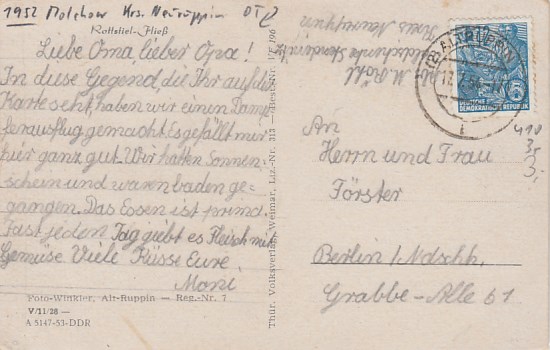 1952 Molchow Krs. Neuruppin OT
Rottstiel-Fließ
Liebe Oma, lieber Opa!
In diese Gegend, die Ihr auf der
Karte seht, haben wir einen Damp-
ferausflug gemacht. Es gefällt mir
hier ganz gut. Wir hatten Sonnen-
schein und waren baden ge-
gangen. Das Essen ist prima.
Fast jeden Tag giebt es Fleisch mit
Gemüse Viele Küsse Eure
Moni
Foto-Winkler, Alt-Ruppin — Reg.-Nr. 7
V/11/28 —
A 5147-53-DDR
Thür. Volksverlag Weimar, Liz.-Nr. 313 — Best.-Nr.
Kreis Neuruppin
ALT RUPPIN
DEUTSCHE
DEMOKRATISCHE REPUBLIK
An
Herrn und Frau
Förster
Berlin / Ndschh.
Grabbe-Alle 61